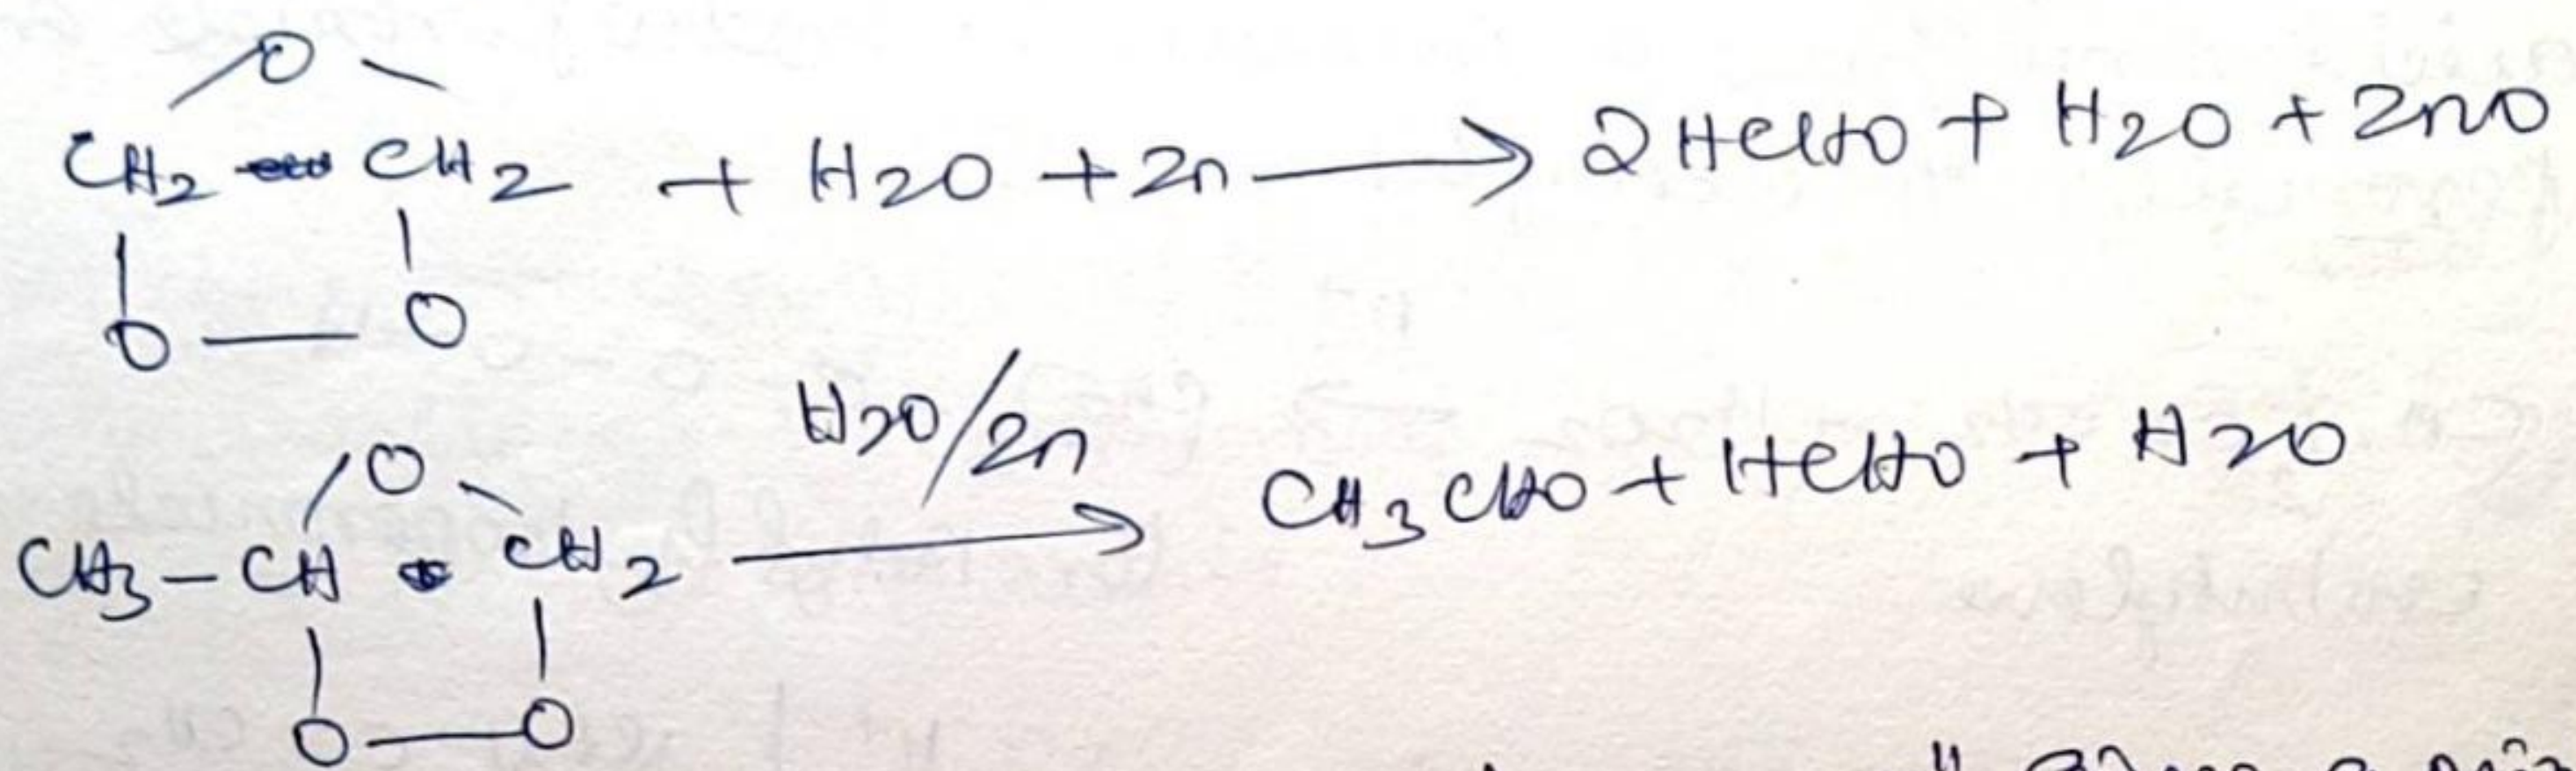 O
CH2 CH2 + H2O + Zn → 2HCHO + H2O + ZnO
O — O
H2O/Zn
O
CH3 – CH CH2 → CH3CHO + HCHO + H2O
O — O